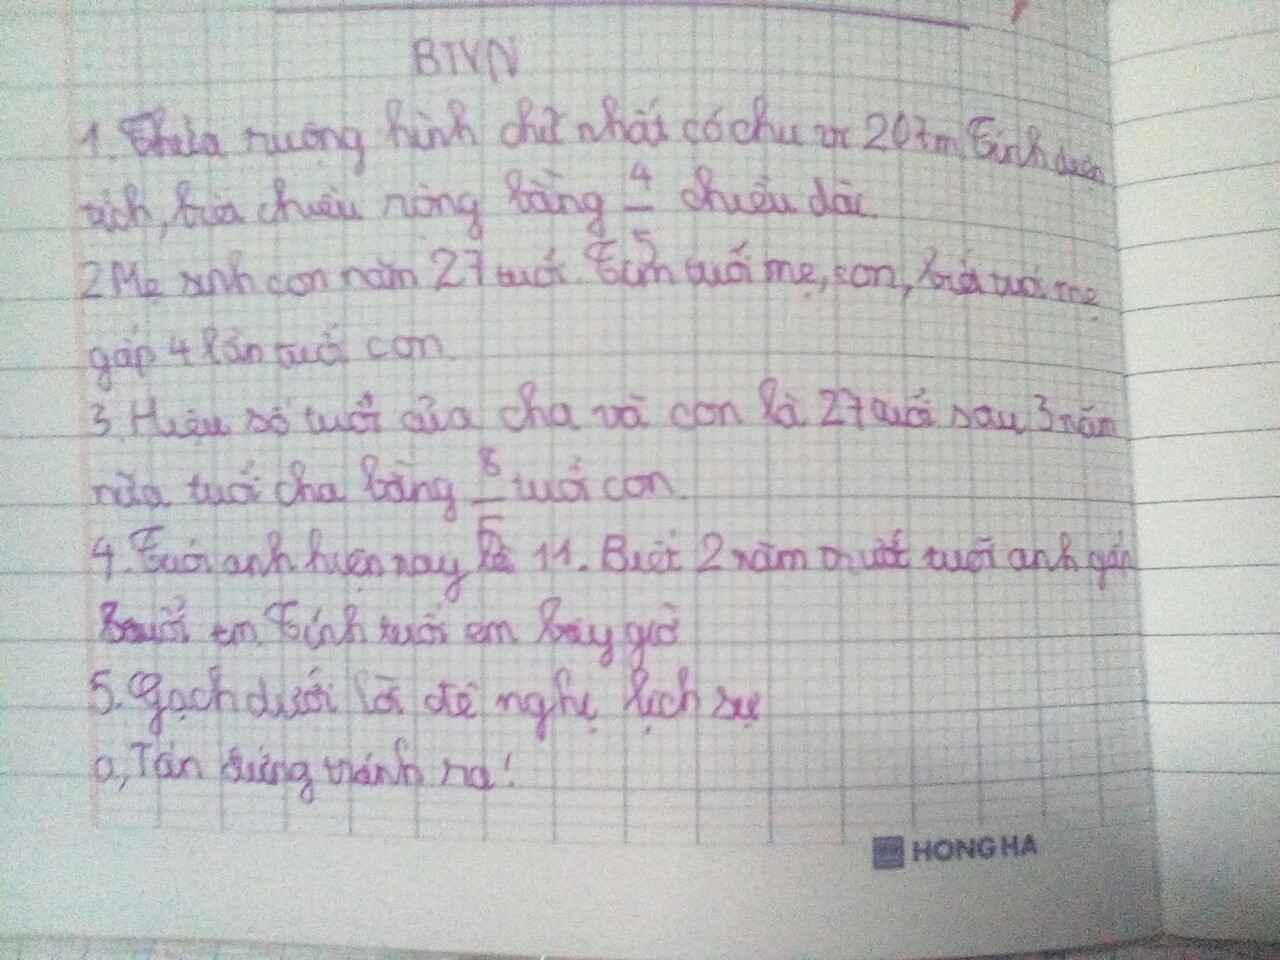 BTVN
1. Thửa ruộng hình chữ nhật có chu vi 207m. Tính diện
tích, biết chiều rộng bằng 4/5 chiều dài.
2 Mẹ sinh con năm 27 tuổi. Tính tuổi mẹ, con, biết tuổi mẹ
gấp 4 lần tuổi con.
3. Hiệu số tuổi của cha và con là 27 tuổi sau 3 năm
nữa tuổi cha bằng 8/5 tuổi con.
4. Tuổi anh hiện nay là 11. Biết 2 năm trước tuổi anh gấp
tuổi em. Tính tuổi em bây giờ
5. Gạch dưới lời đề nghị lịch sự
a, Tán đứng tránh ra!
HONG HA